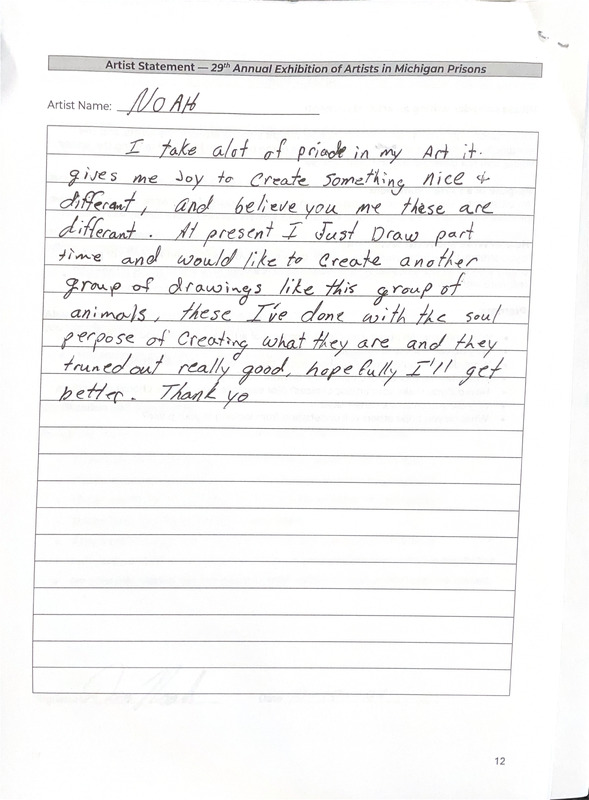 Artist Statement — 29th Annual Exhibition of Artists in Michigan Prisons
Artist Name: NOAH
I take alot of priade in my Art it.
gives me Joy to Create Something nice &
different, and believe you me these are
differant. At present I Just Draw part
time and would like to Create another
group of drawings like this group of
animals, these I've done with the soul
perpose of Creating what they are and they
truned out really good, hopefully I'll get
better. Thank yo
12